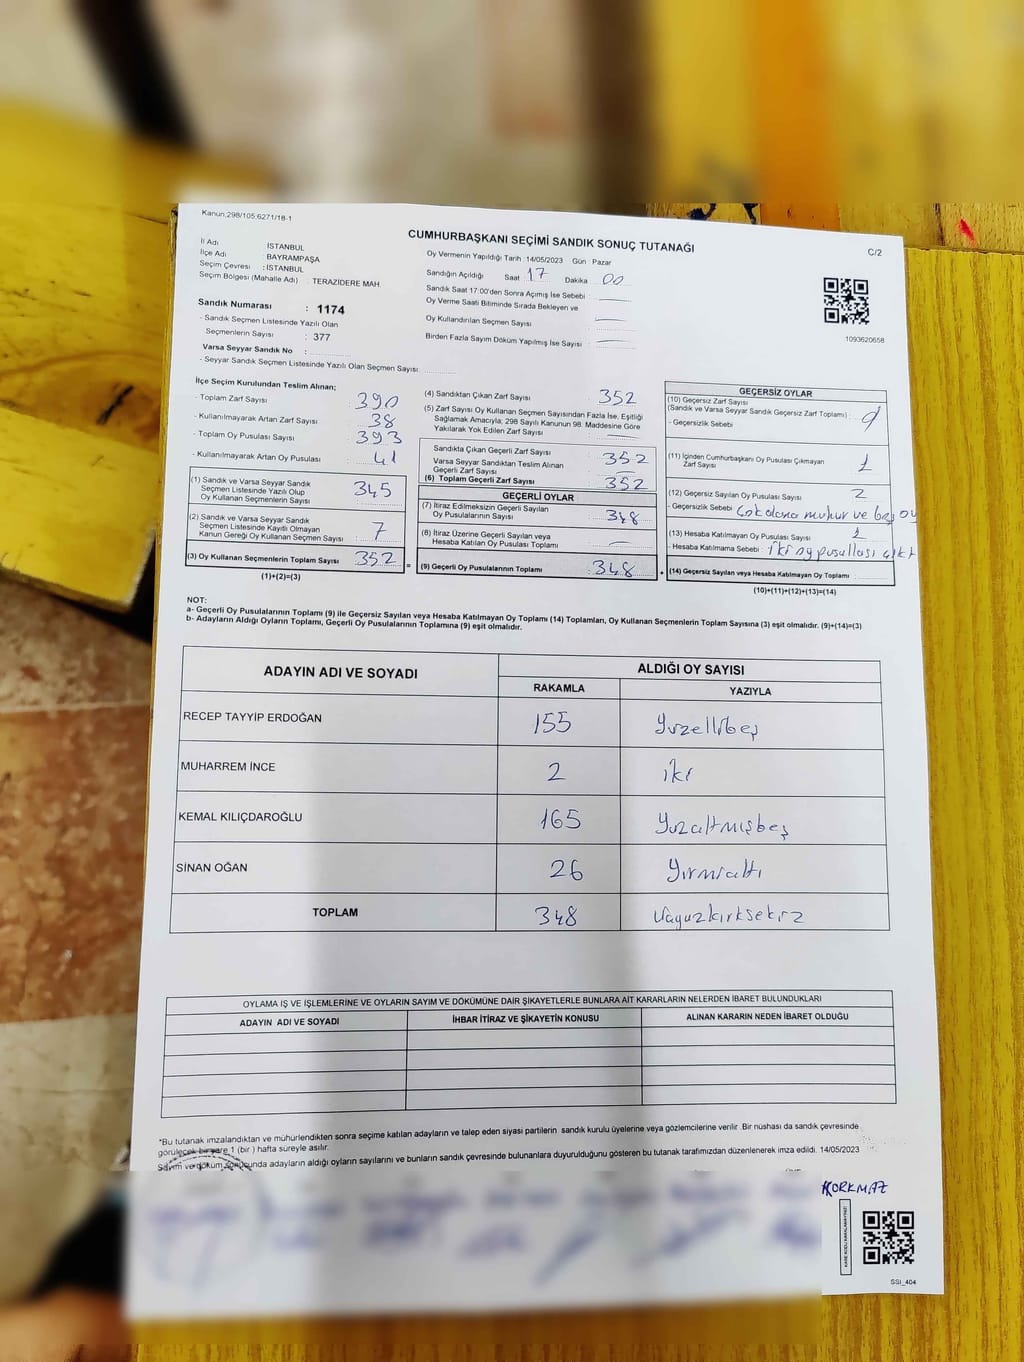 Kanun,298/105;6271/18-1
CUMHURBAŞKANI SEÇİMİ SANDIK SONUÇ TUTANAĞI
C/2
İl Adı İSTANBUL
İlçe Adı BAYRAMPAŞA
Seçim Çevresi : İSTANBUL
Seçim Bölgesi (Mahalle Adı) : TERAZİDERE MAH.
Sandık Numarası : 1174
- Sandık Seçmen Listesinde Yazılı Olan
Seçmenlerin Sayısı : 377
Varsa Seyyar Sandık No :
- Seyyar Sandık Seçmen Listesinde Yazılı Olan Seçmen Sayısı:
Oy Vermenin Yapıldığı Tarih :14/05/2023 Gün : Pazar
Sandığın Açıldığı Saat 17 Dakika 00
Sandık Saat 17:00'den Sonra Açılmış İse Sebebi
Oy Verme Saati Bitiminde Sırada Bekleyen ve
Oy Kullandırılan Seçmen Sayısı
Birden Fazla Sayım Döküm Yapılmış İse Sayısı
1093620658
İlçe Seçim Kurulundan Teslim Alınan;
- Toplam Zarf Sayısı : 390
- Kullanılmayarak Artan Zarf Sayısı : 38
- Toplam Oy Pusulası Sayısı : 393
- Kullanılmayarak Artan Oy Pusulası : 41
(1) Sandık ve Varsa Seyyar Sandık
Seçmen Listesinde Yazılı Olup
Oy Kullanan Seçmenlerin Sayısı : 345
(2) Sandık ve Varsa Seyyar Sandık
Seçmen Listesinde Kayıtlı Olmayan
Kanun Gereği Oy Kullanan Seçmen Sayısı : 7
(3) Oy Kullanan Seçmenlerin Toplam Sayısı : 352
(1)+(2)=(3)
(4) Sandıktan Çıkan Zarf Sayısı : 352
(5) Zarf Sayısı Oy Kullanan Seçmen Sayısından Fazla İse, Eşitliği
Sağlamak Amacıyla; 298 Sayılı Kanunun 98. Maddesine Göre
Yakılarak Yok Edilen Zarf Sayısı :
Sandıkta Çıkan Geçerli Zarf Sayısı : 352
Varsa Seyyar Sandıktan Teslim Alınan
Geçerli Zarf Sayısı :
(6) Toplam Geçerli Zarf Sayısı : 352
GEÇERLİ OYLAR
(7) İtiraz Edilmeksizin Geçerli Sayılan
Oy Pusulalarının Sayısı : 348
(8) İtiraz Üzerine Geçerli Sayılan veya
Hesaba Katılan Oy Pusulası Toplamı :
= (9) Geçerli Oy Pusulalarının Toplamı : 348 +
GEÇERSİZ OYLAR
(10) Geçersiz Zarf Sayısı
(Sandık ve Varsa Seyyar Sandık Geçersiz Zarf Toplamı) :
- Geçersizlik Sebebi
(11) İçinden Cumhurbaşkanı Oy Pusulası Çıkmayan
Zarf Sayısı : 1
(12) Geçersiz Sayılan Oy Pusulası Sayısı : 2
- Geçersizlik Sebebi mühür ve boş oy
(13) Hesaba Katılmayan Oy Pusulası Sayısı : 1
- Hesaba Katılmama Sebebi : iki oy pusullası çıktı
(14) Geçersiz Sayılan veya Hesaba Katılmayan Oy Toplamı :
(10)+(11)+(12)+(13)=(14)
NOT:
a- Geçerli Oy Pusulalarının Toplamı (9) ile Geçersiz Sayılan veya Hesaba Katılmayan Oy Toplamı (14) Toplamları, Oy Kullanan Seçmenlerin Toplam Sayısına (3) eşit olmalıdır. (9)+(14)=(3)
b- Adayların Aldığı Oyların Toplamı, Geçerli Oy Pusulalarının Toplamına (9) eşit olmalıdır.
ADAYIN ADI VE SOYADI ALDIĞI OY SAYISI
RAKAMLA YAZIYLA
RECEP TAYYİP ERDOĞAN 155 Yüzellibeş
MUHARREM İNCE 2 iki
KEMAL KILIÇDAROĞLU 165 Yüzaltmışbeş
SİNAN OĞAN 26 Yirmialtı
TOPLAM 348 Üçyüzkırksekiz
OYLAMA İŞ VE İŞLEMLERİNE VE OYLARIN SAYIM VE DÖKÜMÜNE DAİR ŞİKAYETLERLE BUNLARA AİT KARARLARIN NELERDEN İBARET BULUNDUKLARI
ADAYIN ADI VE SOYADI İHBAR İTİRAZ VE ŞİKAYETİN KONUSU ALINAN KARARIN NEDEN İBARET OLDUĞU
*Bu tutanak imzalandıktan ve mühürlendikten sonra seçime katılan adayların ve talep eden siyasi partilerin sandık kurulu üyelerine veya gözlemcilerine verilir. Bir nüshası da sandık çevresinde
görülecek bir yere 1 (bir ) hafta süreyle asılır.
Sayım ve döküm sonucunda adayların aldığı oyların sayılarını ve bunların sandık çevresinde bulunanlara duyurulduğunu gösteren bu tutanak tarafımızdan düzenlenerek imza edildi. 14/05/2023
KORKMAZ
KARE KODU KARALAMAYINIZ!
SSI_404